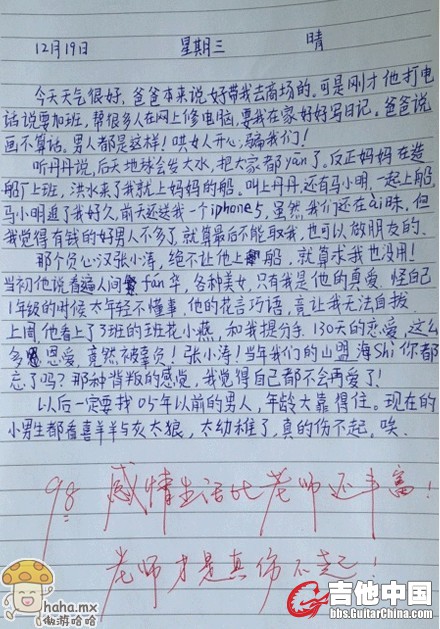 12月19日 星期三 晴
今天天气很好，爸爸本来说好带我去商场的。可是刚才他打电
话说要加班，帮很多人在网上修电脑，要我在家好好写日记。爸爸说
画不算话，男人都是这样！哄女人开心，骗我们！
听丹丹说，后天地球会发大水，把大家都yān了。反正妈妈在造
船厂上班，洪水来了我就上妈妈的船。叫上丹丹，还有马小明，一起上船，
马小明追了我好久，前天还送我一个iphone5，虽然我们还在ài昧，但
我觉得有钱的好男人不多了，就算最后不能取我，也可以做朋友的。
那个负心汉张小涛，绝不让他上船，就算求我也没用！
当初他说看遍人间fán华，各种美女，只有我是他的真爱，怪自己
1年级的时候太年轻不懂事，他的花言巧语，竟让我无法自拔。
上周，他看上了3班的班花小燕，和我提分手，130天的恋爱，这么
多恩爱，竟然被辜负！张小涛！当年我们的山盟海Shì你都
忘了吗？那种背叛的感觉，我觉得自己都不会再爱了！
以后一定要找05年以前的男人，年龄大靠得住。现在的
小男生都看喜羊羊与灰太狼，太幼稚了，真的伤不起，唉。
98 感情生活比老师还丰富！
老师才是真伤不起！
haha.mx
傲游哈哈
吉他中国
bbs.GuitarChina.com